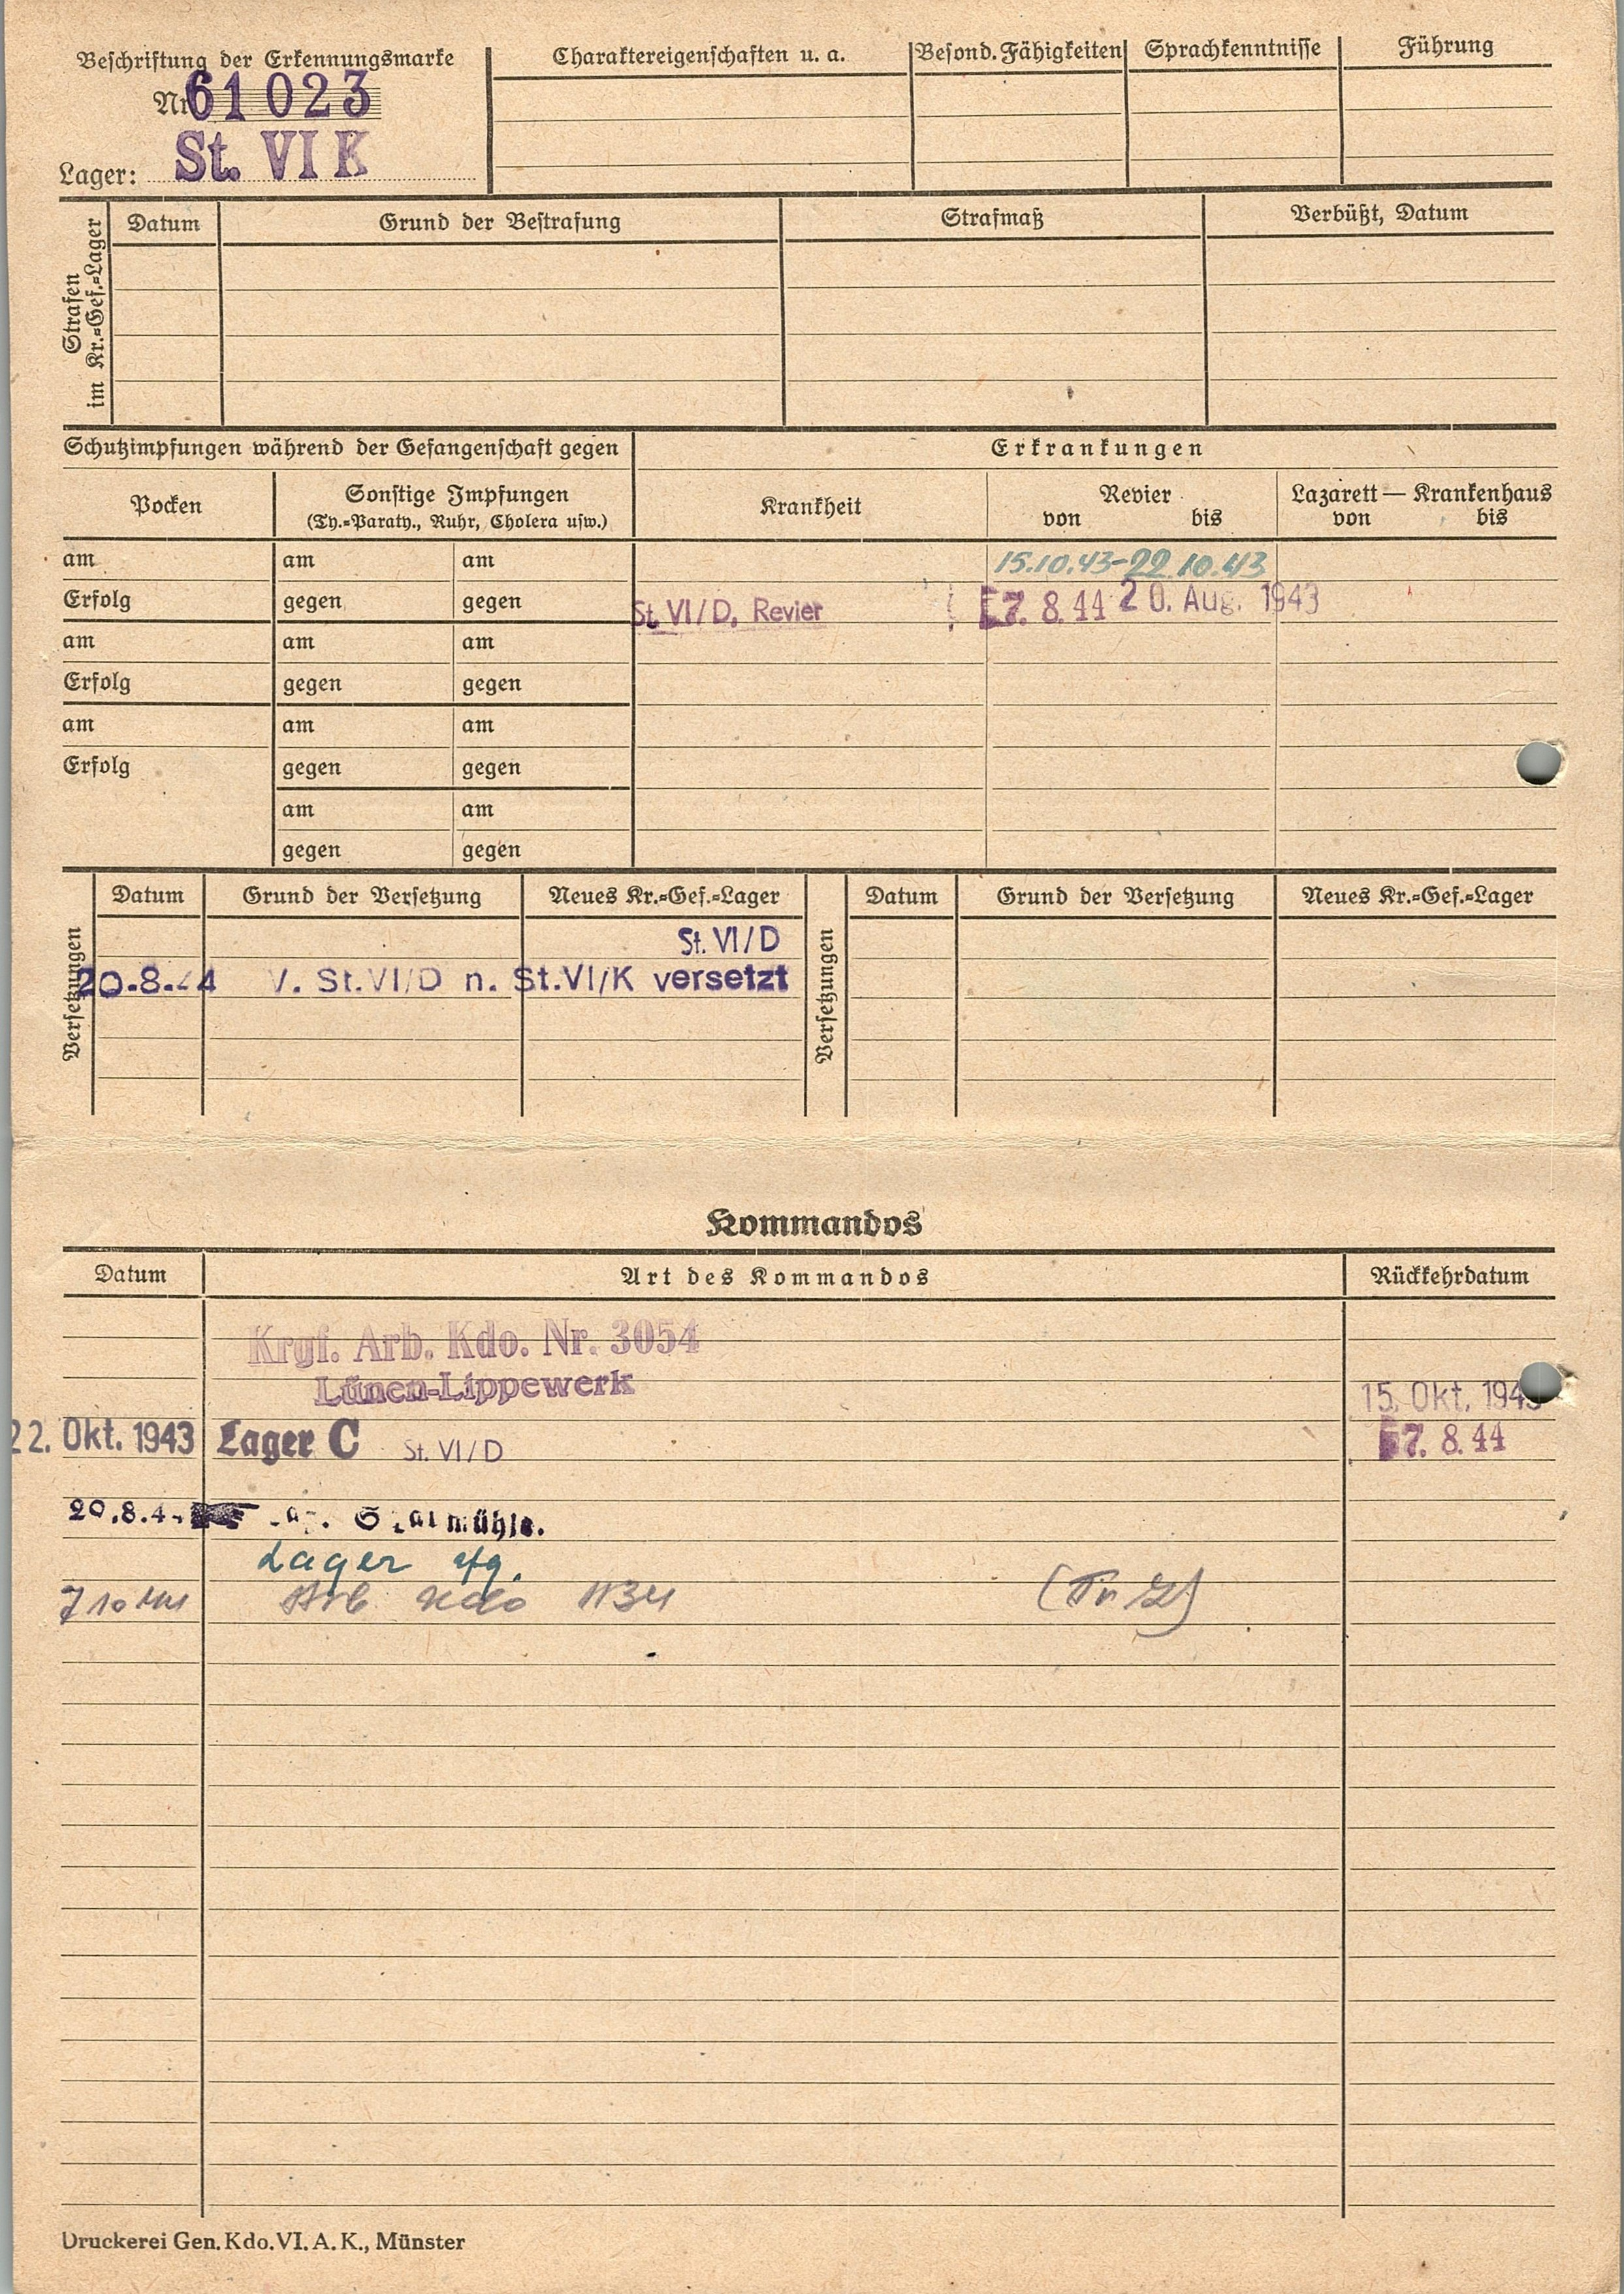 Beschriftung der Erkennungsmarke
Nr. 61023
Lager: St. VI K
Charaktereigenschaften u. a.
Besond. Fähigkeiten
Sprachkenntnisse
Führung
Strafen im Kr.=Gef.=Lager
Datum
Grund der Bestrafung
Strafmaß
Verbüßt, Datum
Schutzimpfungen während der Gefangenschaft gegen
Erkrankungen
Pocken
Sonstige Impfungen
(Ty.=Paraty., Ruhr, Cholera usw.)
Krankheit
Revier
von bis
Lazarett — Krankenhaus
von bis
am am am
15.10.43-22.10.43
Erfolg gegen gegen
St. VI/D, Revier 7. 8. 44 20. Aug. 1943
am am am
Erfolg gegen gegen
am am am
Erfolg gegen gegen
am am
gegen gegen
Versetzungen
Datum Grund der Versetzung Neues Kr.=Gef.=Lager
St. VI/D
20.8.44 V. St.VI/D n. St.VI/K versetzt
Versetzungen
Datum Grund der Versetzung Neues Kr.=Gef.=Lager
Kommandos
Datum Art des Kommandos Rückkehrdatum
Krgf. Arb. Kdo. Nr. 3054
Lünen-Lippewerk 15. Okt. 1943
22. Okt. 1943 Lager C St. VI/D 7. 8. 44
20.8.4
Lager
Arb Kdo 1134
Druckerei Gen. Kdo. VI. A. K., Münster